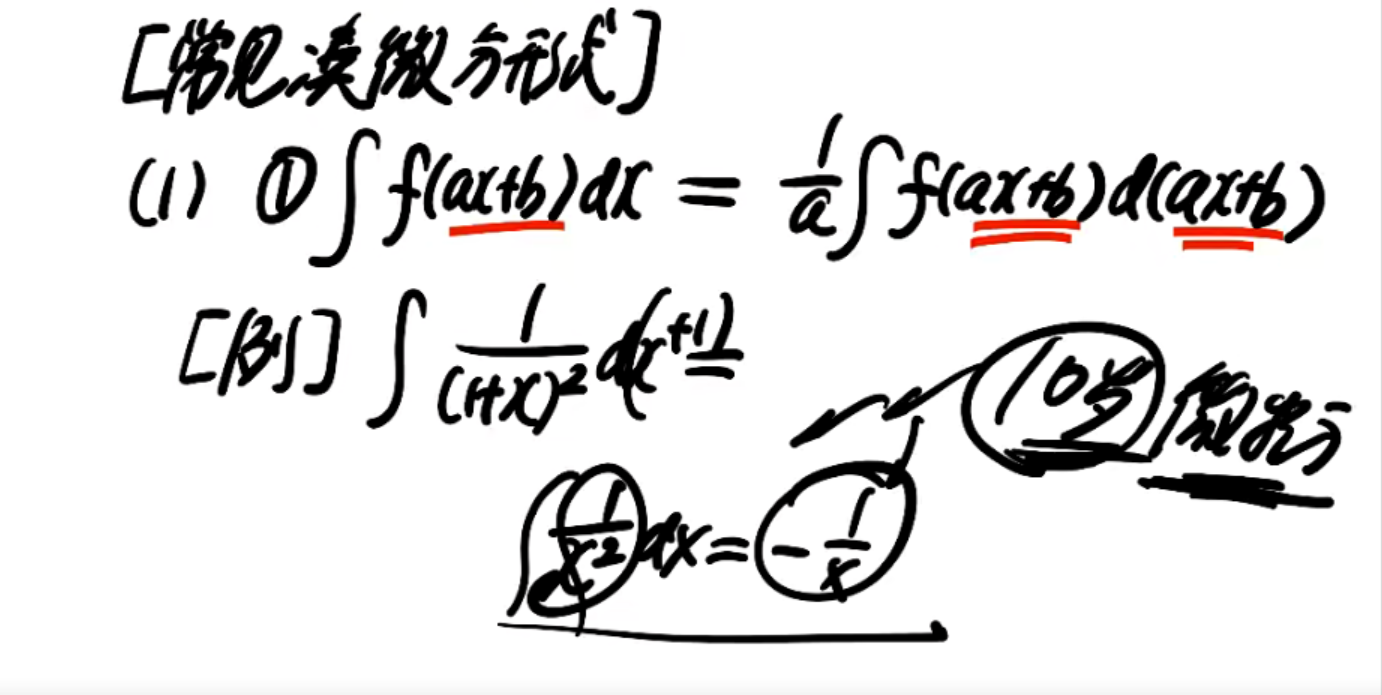 [常见凑微分形式]
(1) ① ∫ f(ax+b) dx = 1/a ∫ f(ax+b) d(ax+b)
[例] ∫ 1/(1+x)² d(x+1)
10岁 微积分
∫ 1/x² dx = - 1/x